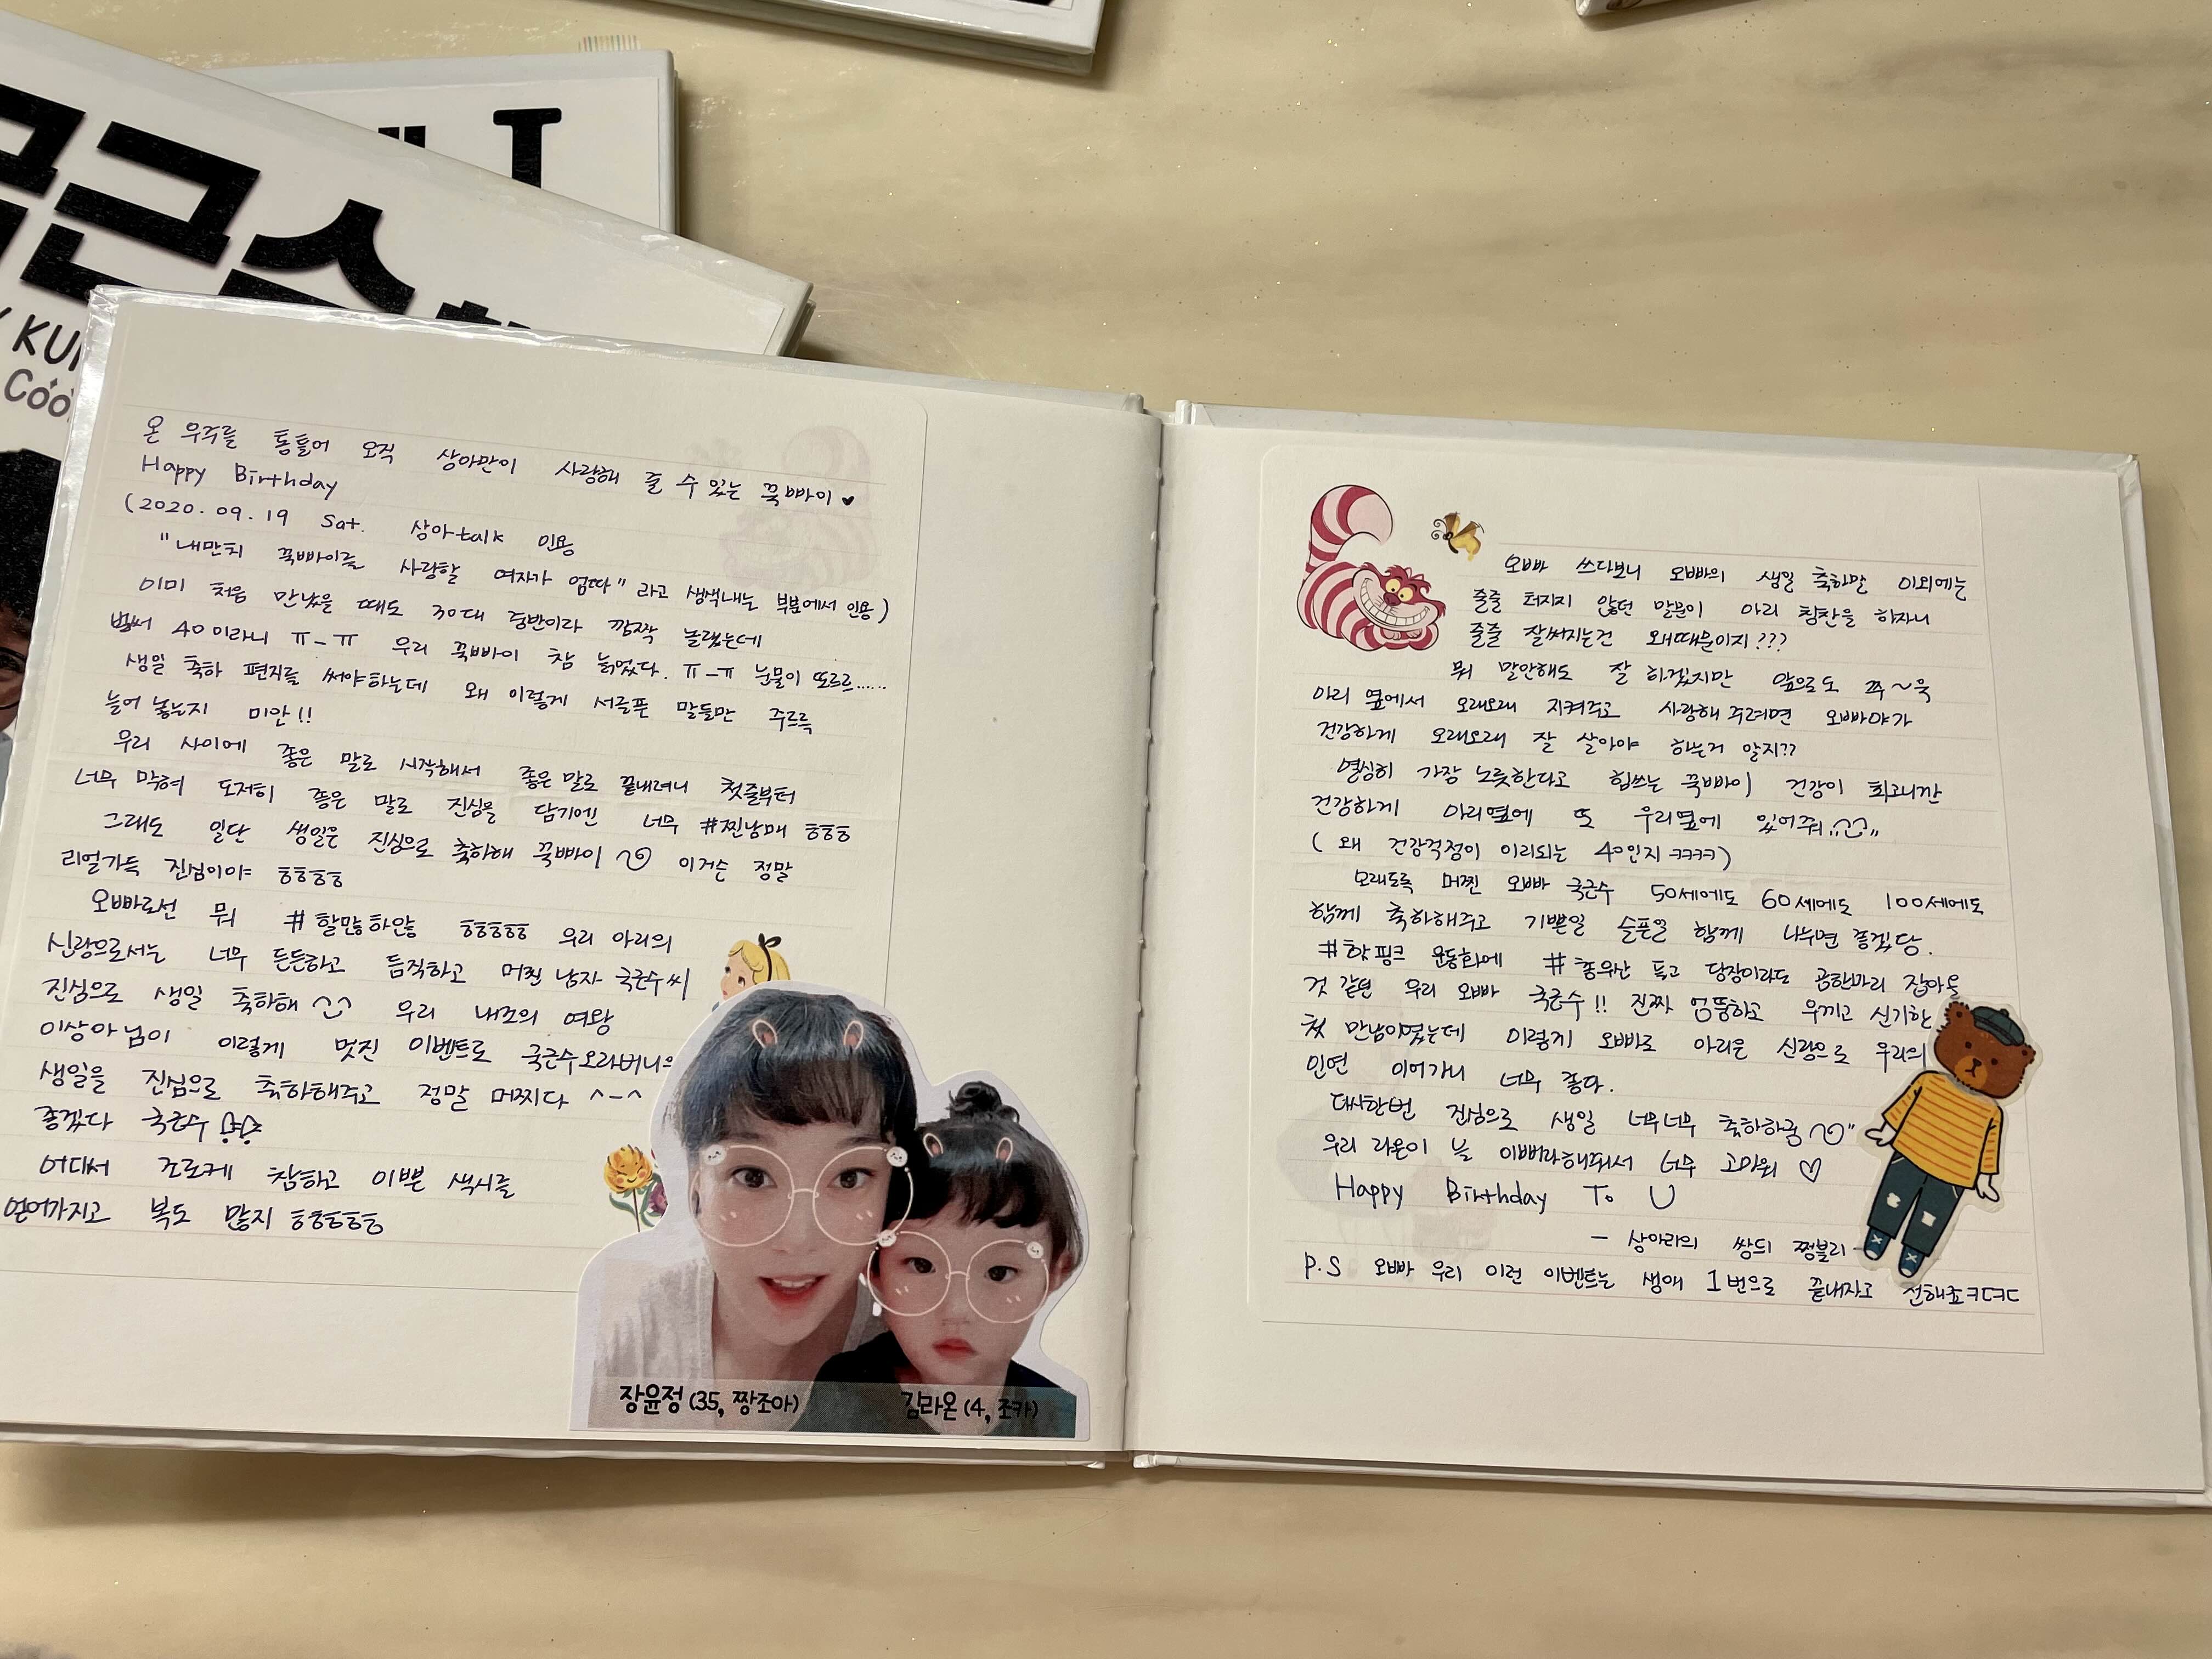 국근수
KU
Coo
I
온 우주를 통틀어 오직 상아만이 사랑해 줄 수 있는 꾹빠이♥
Happy Birthday
(2020.09.19 Sat. 상아talk 인용
"내만치 꾹빠이를 사랑할 여자가 엄따" 라고 생색내는 부분에서 인용)
이미 처음 만났을 때도 30대 중반이라 깜짝 놀랬는데
벌써 40이라니 ㅠ_ㅠ 우리 꾹빠이 참 늙었다. ㅠ_ㅠ 눈물이 또르르......
생일 축하 편지를 써야하는데 왜 이렇게 서글픈 말들만 주르륵
늘어 놓는지 미안!!
우리 사이에 좋은 말로 시작해서 좋은 말로 끝내려니 첫줄부터
너무 막혀 도저히 좋은 말로 진심을 담기엔 너무 #찐남매 ㅎㅎㅎ
그래도 일단 생일은 진심으로 축하해 꾹빠이 이거슨 정말
리얼가득 진심이야 ㅎㅎㅎㅎ
오빠로선 뭐 #할많하않 ㅎㅎㅎㅎㅎ 우리 아리의
신랑으로서는 너무 든든하고 듬직하고 머찐 남자 국근수씨
진심으로 생일 축하해 ^^ 우리 내조의 여왕
이상아님이 이렇게 멋진 이벤트로 국근수오라버니의
생일을 진심으로 축하해주고 정말 머찌다 ^-^
좋겠다 국근수
어디서 조로케 참하고 이쁜 색시를
얻어가지고 복도 많지 ㅎㅎㅎㅎㅎ
장윤정 (35, 짱조아) 김라온 (4, 조카)
오빠 쓰다보니 오빠의 생일 축하말 이외에는
줄줄 터지지 않던 말문이 아리 칭찬을 하자니
줄줄 잘써지는건 왜때문이지???
뭐 말안해도 잘 하겠지만 앞으로도 쭈~욱
아리 옆에서 오래오래 지켜주고 사랑해 주려면 오빠야가
건강하게 오래오래 잘 살아야 하는거 알지??
열심히 가장 노릇한다고 힘쓰는 꾹빠이 건강이 최고니깐
건강하게 아리옆에 또 우리옆에 있어줘
(왜 건강걱정이 이리되는 40인지 ㅋㅋㅋㅋ)
오래도록 머찐 오빠 국근수 50세에도 60세에도 100세에도
함께 축하해주고 기쁜일 슬픈일 함께 나누면 좋겠당.
#핫핑크 운동화에 #종우산 들고 당장이라도 곰한마리 잡아올
것 같던 우리 오빠 국근수!! 진짜 엉뚱하고 우끼고 신기한
첫 만남이였는데 이렇게 오빠로 아리온 신랑으로 우리의
인연 이어가니 너무 좋다.
다시한번 진심으로 생일 너무너무 축하하공
우리 라온이 늘 이뻐라해줘서 너무 고마워 ♡
Happy Birthday To U
- 상아라의 쌍듸 쩡블리 -
P.S 오빠 우리 이런 이벤트는 생애 1번으로 끝내자고 전해죠ㅋㄷㅋㄷ